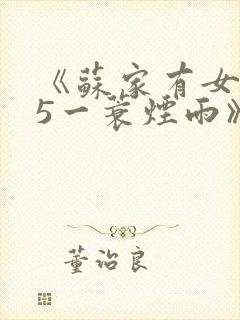 《蘇家有女
5一蓑煙雨》
董治良